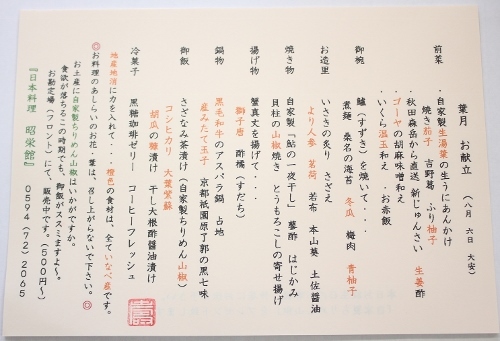 葉月 お献立 （八月 六日 大安）
前菜
・自家製生湯葉の生うにあんかけ
焼き茄子 吉野葛 ふり柚子
・秋田森岳から直送 新じゅんさい 生姜酢
・ゴーヤの胡麻味噌和え
・いくら温玉和え ・お赤飯
御椀
鱸（すずき）を焼いて・・・
煮麺 桑名の海苔 冬瓜 梅肉 青柚子
お造里
いさきの炙り さざえ
より人参 茗荷 若布 本山葵 土佐醤油
焼き物
自家製「鮎の一夜干し」 蓼酢 はじかみ
貝柱の山椒焼き とうもろこしの寄せ揚げ
揚げ物
蟹真丈を揚げて・・・
獅子唐 酢橘（すだち）
鍋物
黒毛和牛のアスパラ鍋 占地
産みたて玉子 京都祇園原了郭の黒七味
御飯
さざなみ茶漬け（自家製ちりめん山椒）
コシヒカリ 大葉紫蘇
胡瓜の糠漬け 干し大根酢醤油漬け
冷菓子
黒糖珈琲ゼリー コーヒーフレッシュ
地産地消に力を入れて・・・橙色の食材は、全ていなべ産です。
◎お料理のあしらいのお花・葉は、召し上がらないで下さい。◎
お土産に自家製ちりめん山椒はいかがですか。
食欲が落ちるこの時期でも、御飯がススミますよ〜。
お勘定場（フロント）にて、販売中です。（５００円〜）
『日本料理 昭栄館』 ０５９４（７２）２０６５